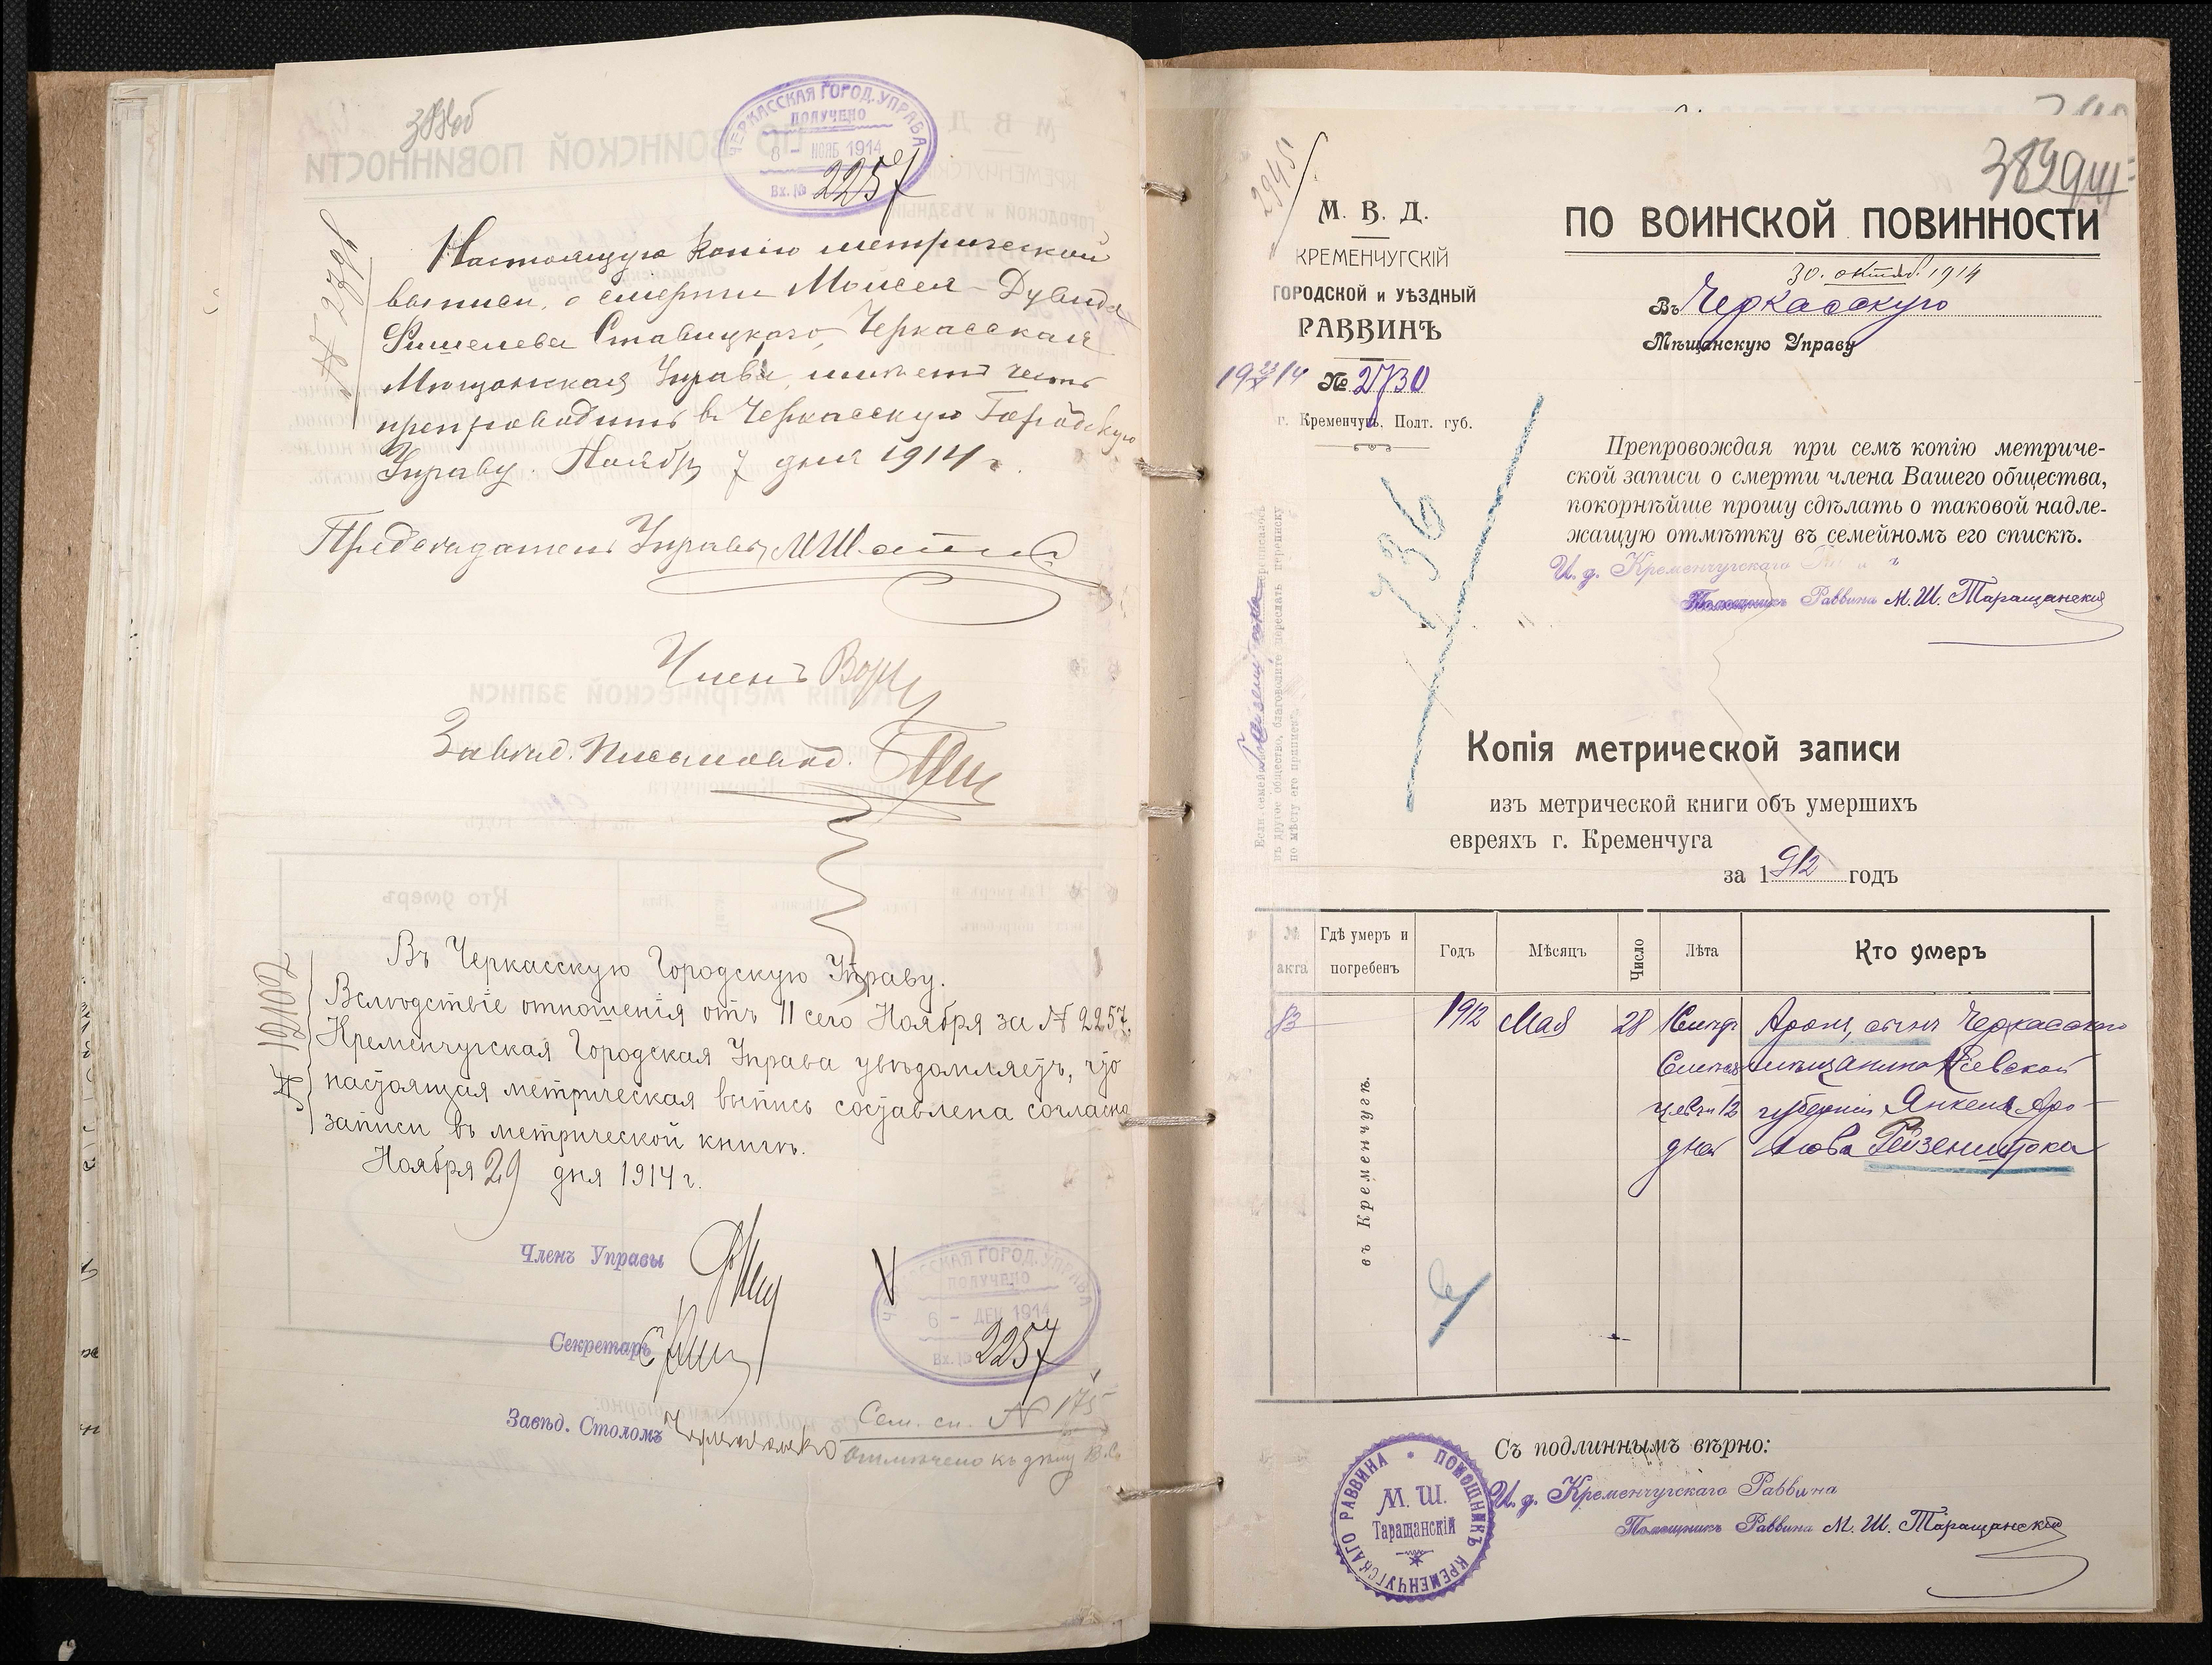 ЧЕРКАССКАЯ ГОРОД. УПРАВА
ПОЛУЧЕНО
8 - НОЯБ 1914
Вх. № 2257
Настоящую копію метрической
выписи, о смерти Моисея-Дувида
Фишелева Ставицкаго, Черкасская
Мѣщанская Управа, имѣетъ честь
препроводить въ Черкасскую Городскую
Управу. Ноября 7 дня 1914 г.
Предсѣдатель Управы
Членъ
Завѣд. Письмовод.
Въ Черкасскую Городскую Управу.
Вслѣдствіе отношенія отъ 11 сего Ноября за № 2257,
Кременчугская Городская Управа увѣдомляетъ, что
настоящая метрическая выпись составлена согласно
записи въ метрической книгѣ.
Ноября 29 дня 1914 г.
Членъ Управы
Секретарь
Завѣд. Столомъ
ЧЕРКАССКАЯ ГОРОД. УПРАВА
ПОЛУЧЕНО
6 - ДЕК 1914
Вх. № 2257
Сем. сп. № 175
Отмѣчено къ дѣлу
2945
М. В. Д.
КРЕМЕНЧУГСКІЙ
ГОРОДСКОЙ и УѢЗДНЫЙ
РАВВИНЪ
№ 2730
г. Кременчугъ, Полт. губ.
ПО ВОИНСКОЙ ПОВИННОСТИ
30. октяб. 1914
Въ Черкасскую
Мѣщанскую Управу
Препровождая при семъ копію метриче-
ской записи о смерти члена Вашего общества,
покорнѣйше прошу сдѣлать о таковой надле-
жащую отмѣтку въ семейномъ его спискѣ.
И. д. Кременчугскаго
Помощникъ Раввина М. Ш. Таращанскій
136
Копія метрической записи
изъ метрической книги объ умершихъ
евреяхъ г. Кременчуга
за 1912 годъ
№ акта
Гдѣ умеръ и погребенъ
Годъ
Мѣсяцъ
Число
Лѣта
Кто умеръ
83
въ Кременчугѣ.
1912
Мая
28
Аронъ, сынъ Черкасскаго
мѣщанина Кіевской
губерніи Янкеля Аро-
нова Рейзенштока
12
дней
Съ подлиннымъ вѣрно:
И. д. Кременчугскаго Раввина
Помощникъ Раввина М. Ш. Таращанскій
ПОМОЩНИКЪ КРЕМЕНЧУГСКАГО РАВВИНА
М. Ш.
Таращанскій